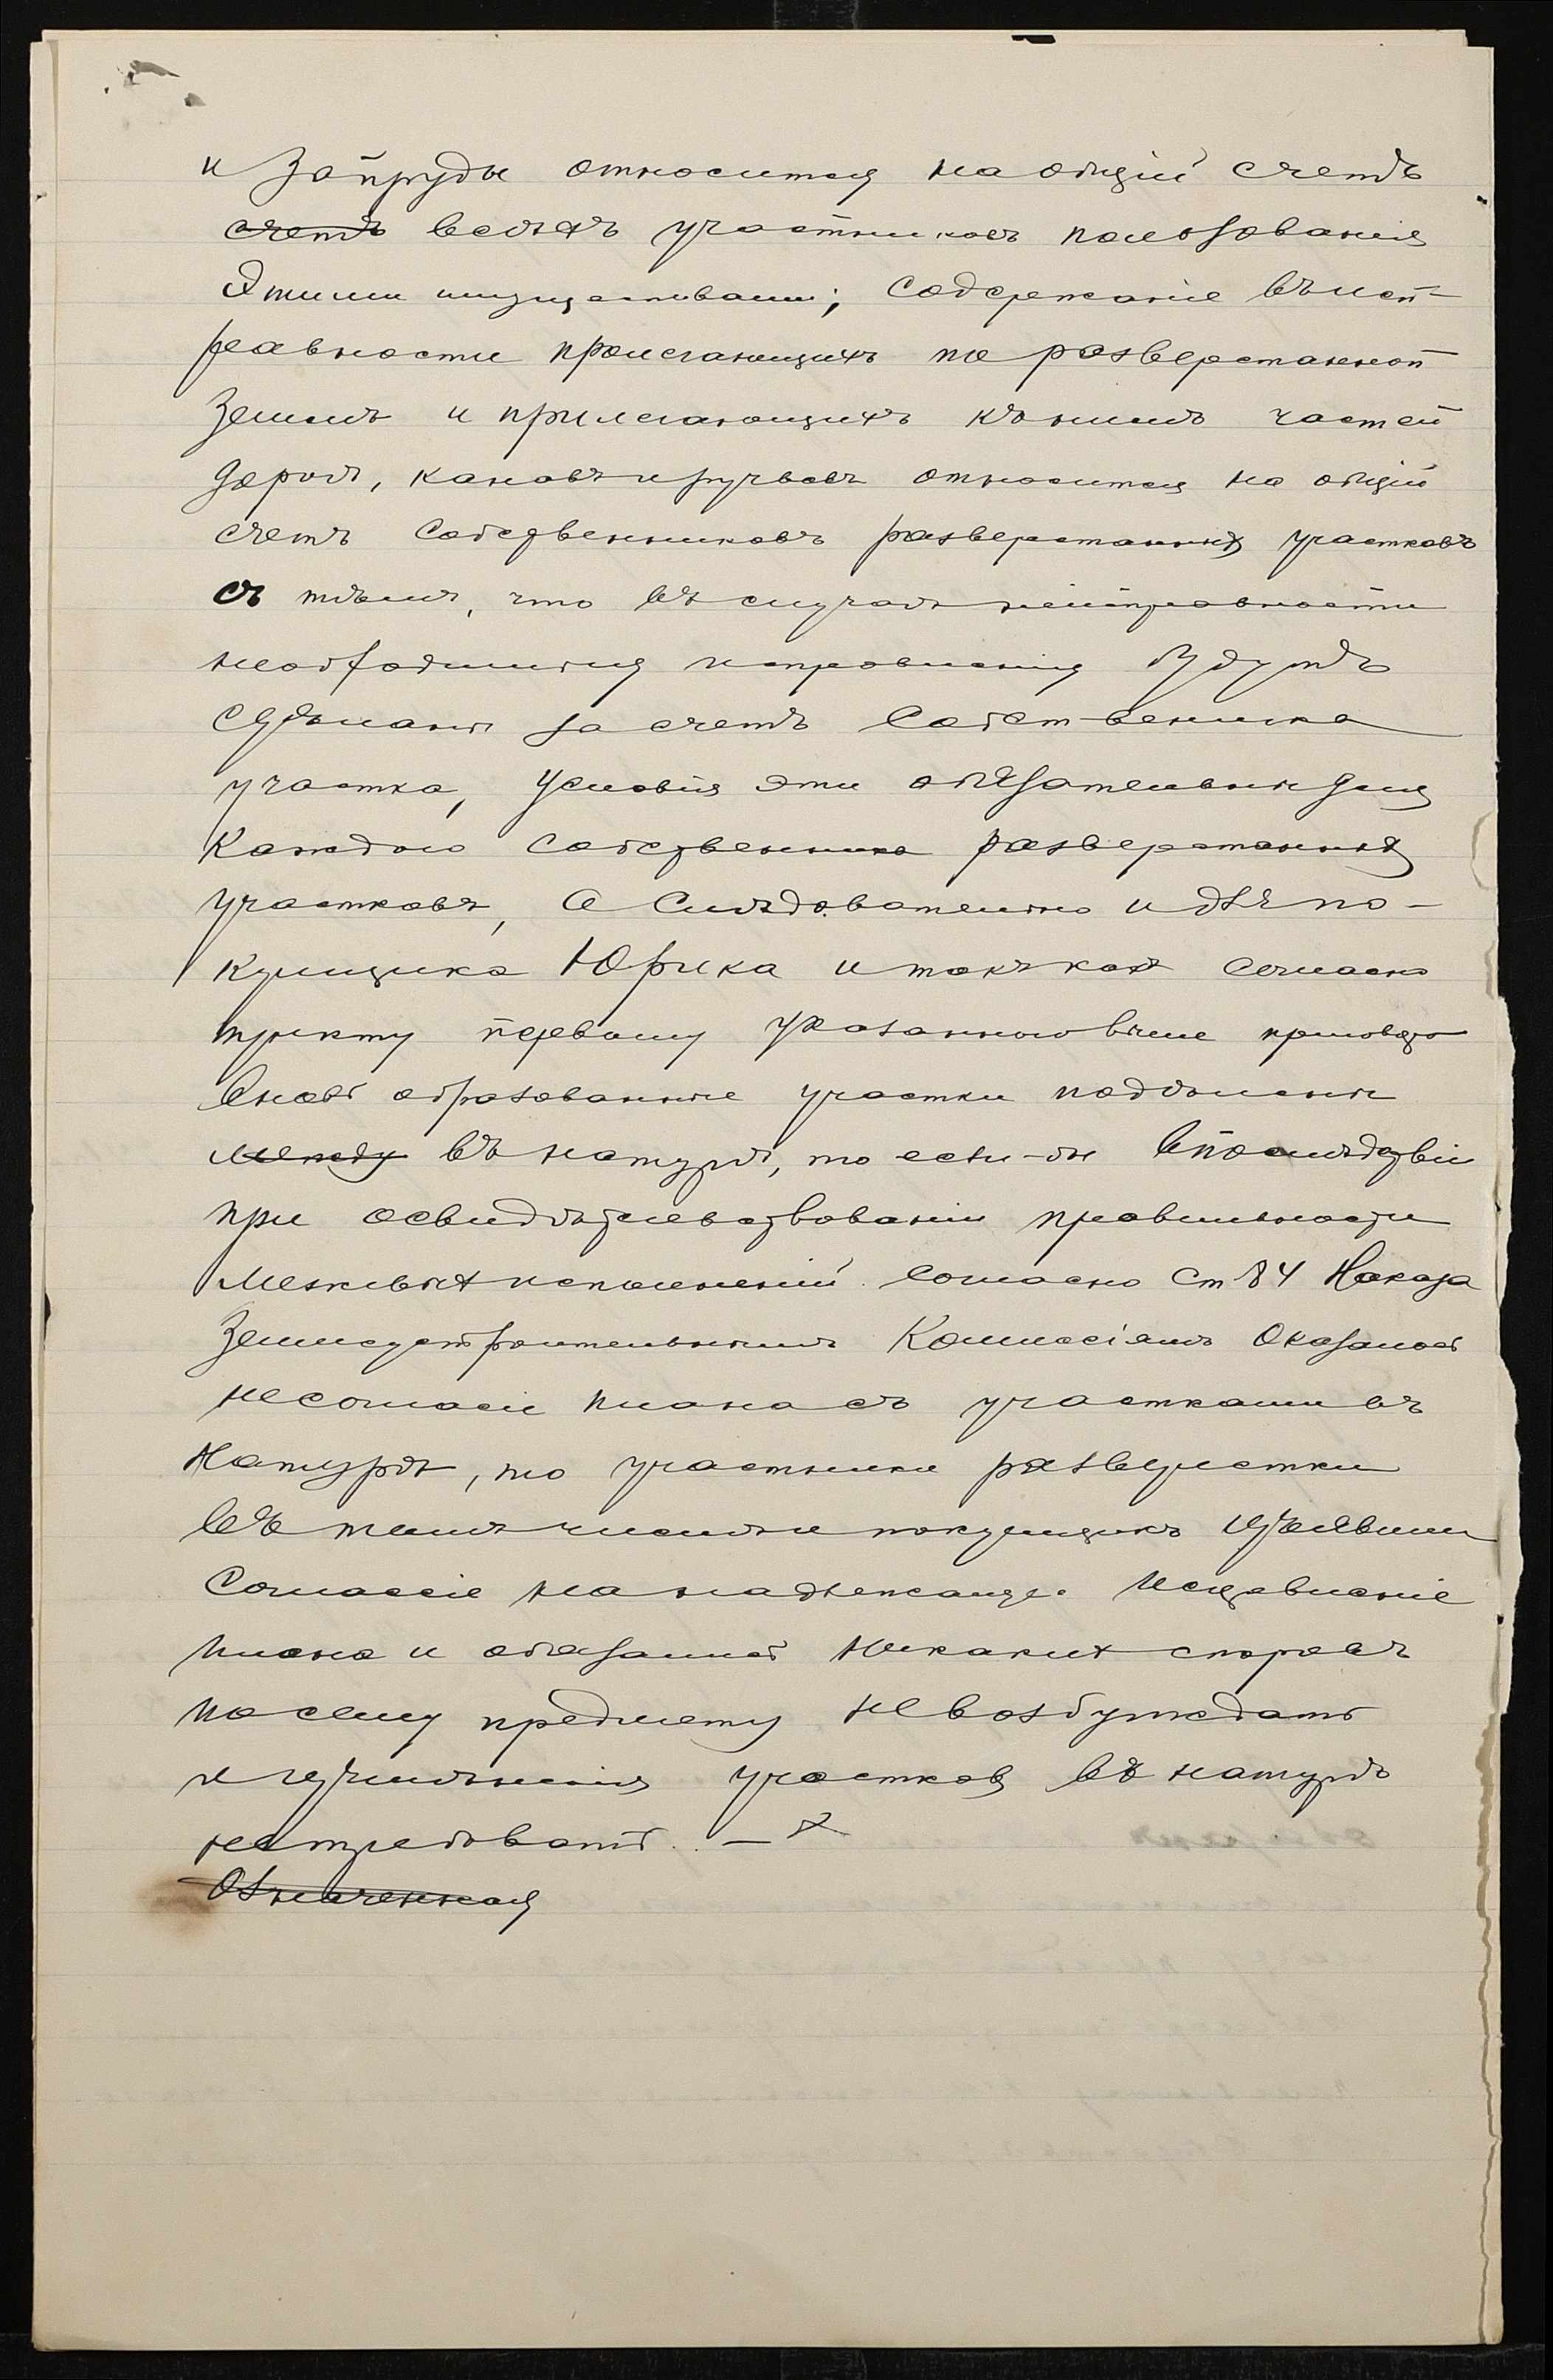 и запруды относится на общій счетъ
счетъ всѣхъ участниковъ пользованія
этими имуществами; содержаніе въ исп-
равности пролегающихъ по разверстанной
землѣ и прилегающихъ къ нимъ частей
дорогъ, канавъ и ручьевъ относится на общій
счетъ собственниковъ разверстанныхъ участковъ
съ тѣмъ, что въ случаѣ неисправности
необходимыя исправленія будутъ
сдѣланы за счетъ собственника
участка, условія эти обязательны для
каждаго собственника разверстанныхъ
участковъ, а слѣдовательно и для по-
купщика Юрика и такъ какъ согласно
пункту первому указаннаго выше приговора
вновь образованные участки подѣлены
между въ натурѣ, то если-бы впослѣдствіи
при освидѣтельствованіи правильности
межевыхъ исполненій согласно ст 84 Наказа
Землеустроительнымъ Коммиссіямъ оказалось
несогласіе плана съ участками въ
натурѣ, то участники разверстки
въ томъ числѣ и покупщикъ изъявили
согласіе на надлежаще исправленіе
плана и обязались никакихъ споровъ
по сему предмету не возбуждать
и измѣненія участковъ въ натурѣ
не требовать. —
Означенная